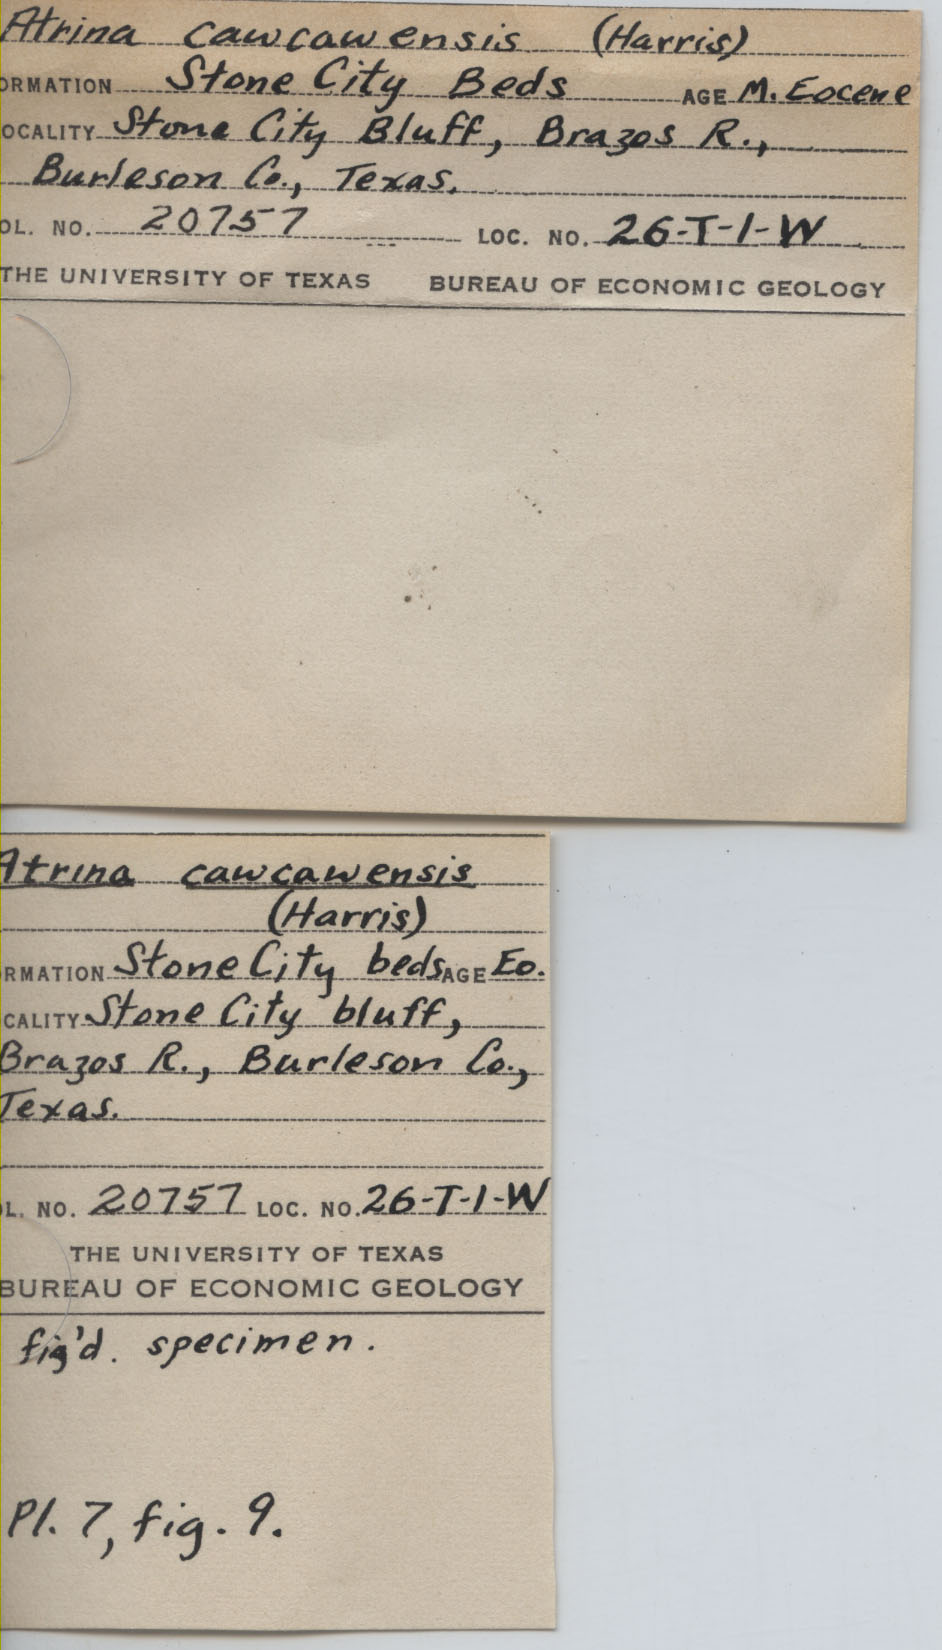 Atrina cawcawensis (Harris)
ORMATION Stone City Beds AGE M. Eocene
OCALITY Stone City Bluff, Brazos R.,
Burleson Co., Texas.
OL. NO. 20757 LOC. NO. 26-T-1-W
THE UNIVERSITY OF TEXAS BUREAU OF ECONOMIC GEOLOGY
Atrina cawcawensis
(Harris)
RMATION Stone City beds AGE Eo.
CALITY Stone City bluff,
Brazos R., Burleson Co.,
Texas.
L. NO. 20757 LOC. NO. 26-T-1-W
THE UNIVERSITY OF TEXAS
BUREAU OF ECONOMIC GEOLOGY
fig'd. specimen.
Pl. 7, fig. 9.